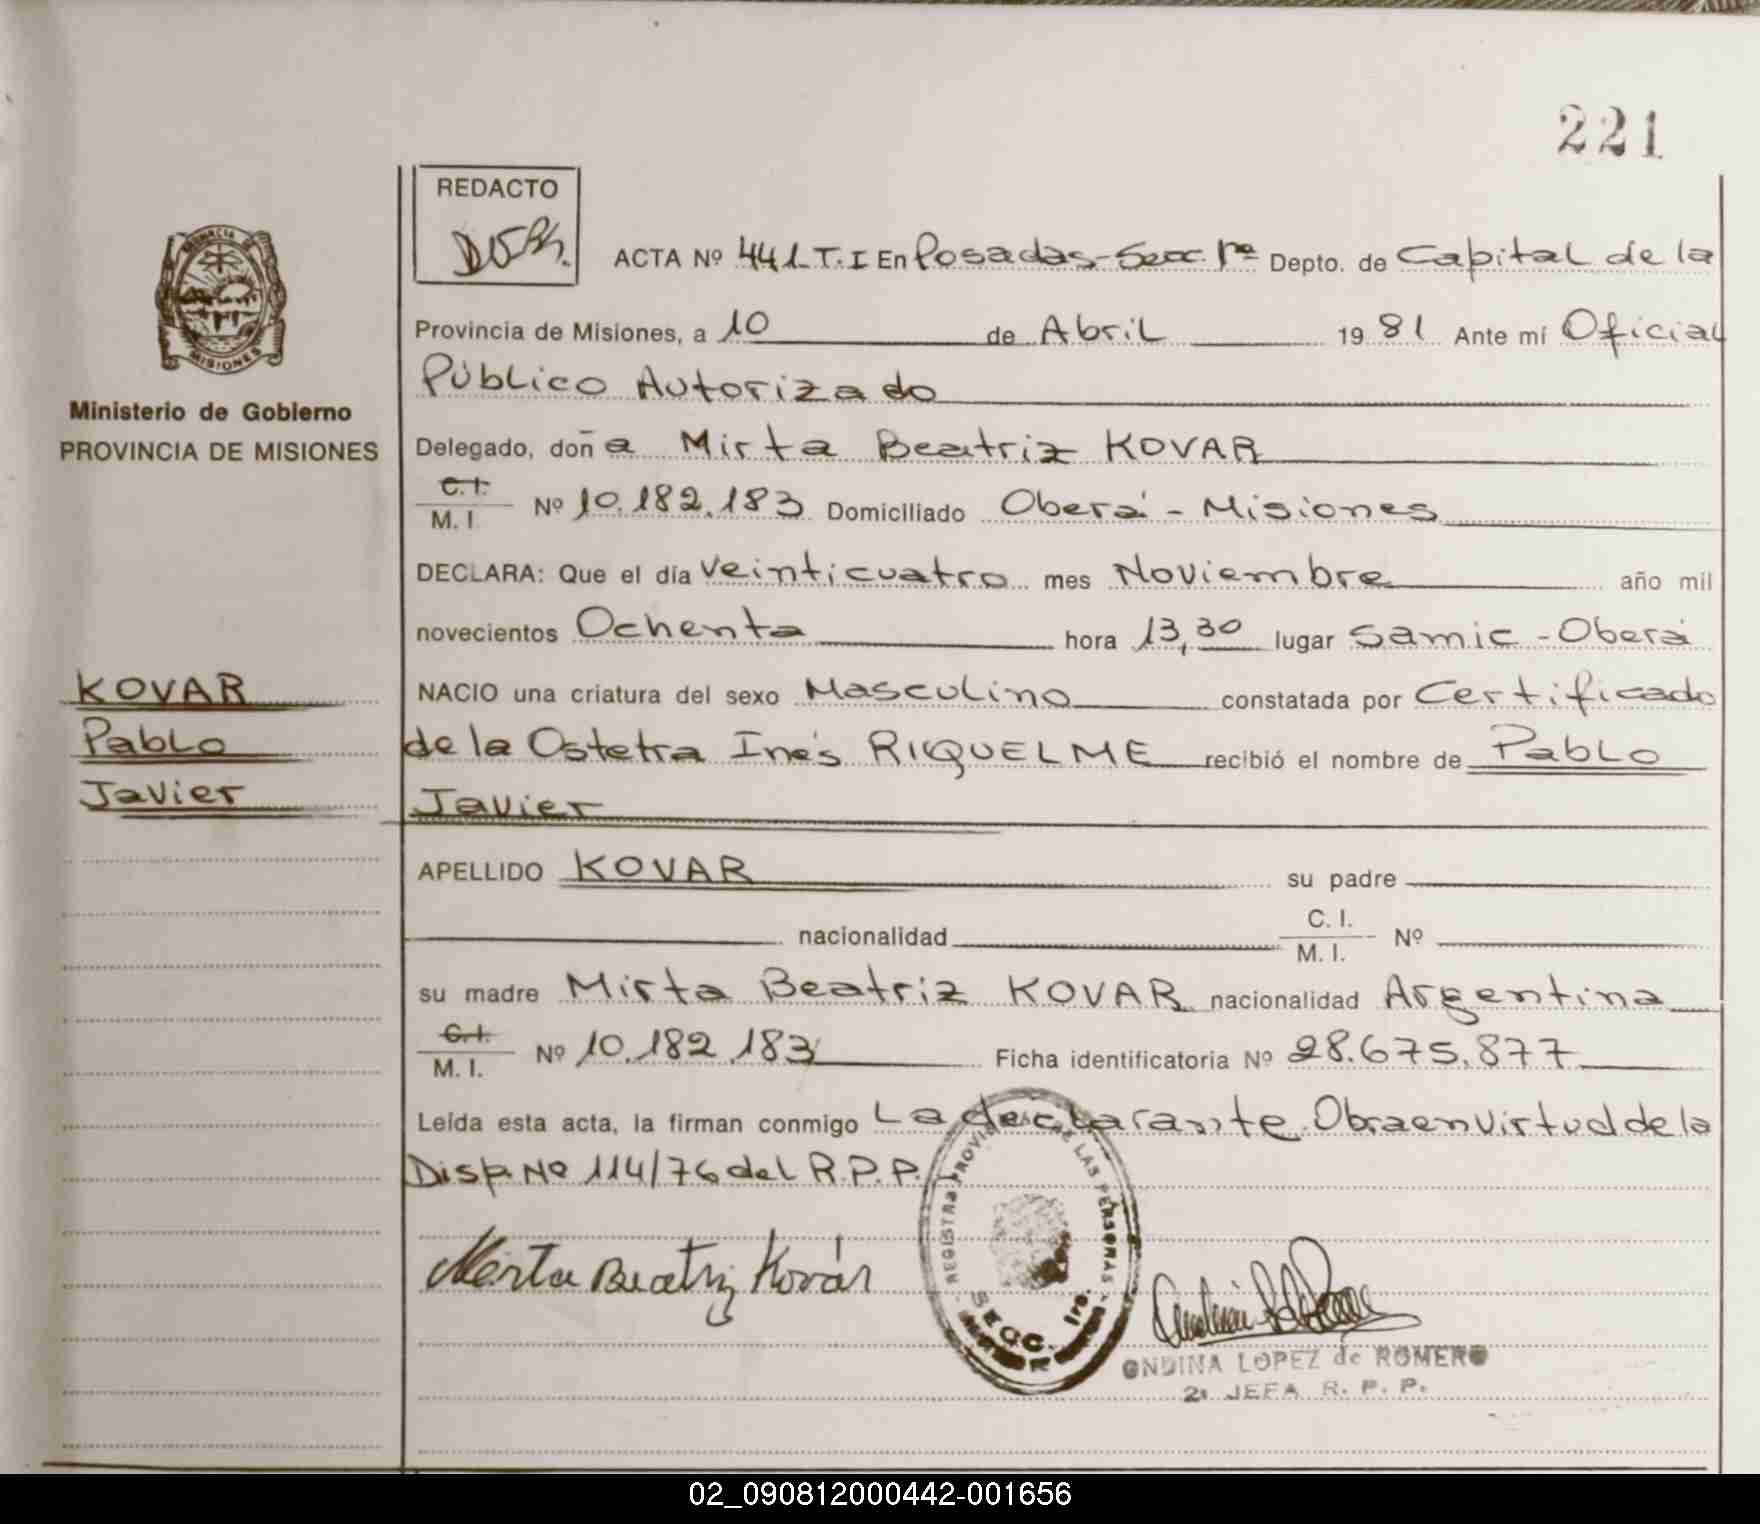 221
REDACTO
PROVINCIA DE
MISIONES
Ministerio de Gobierno
PROVINCIA DE MISIONES
KOVAR
Pablo
Javier
ACTA Nº 441.T.I En Posadas-Secc. 1ra Depto. de Capital de la
Provincia de Misiones, a 10 de Abril 1981 Ante mí Oficial
Público Autorizado
Delegado, doña Mirta Beatriz KOVAR
C.I. M.I. Nº 10.182.183 Domiciliado Oberá - Misiones
DECLARA: Que el día veinticuatro mes Noviembre año mil
novecientos Ochenta hora 13,30 lugar Samic - Oberá
NACIO una criatura del sexo Masculino constatada por Certificado
de la Ostetra Inés RIQUELME recibió el nombre de Pablo
Javier
APELLIDO KOVAR su padre
nacionalidad C. I. M. I. Nº
su madre Mirta Beatriz KOVAR nacionalidad Argentina
C.I. M. I. Nº 10.182.183 Ficha identificatoria Nº 28.675.877
Leída esta acta, la firman conmigo La declarante. Obra en virtud de la
Disp. Nº 114/76 del R.P.P.
REGISTRO PROVINCIAL DE LAS PERSONAS
SECC. 1ra.
Mirta Beatriz Kovár
ONDINA LOPEZ de ROMERO
2ª JEFA R. P. P.
02_090812000442-001656